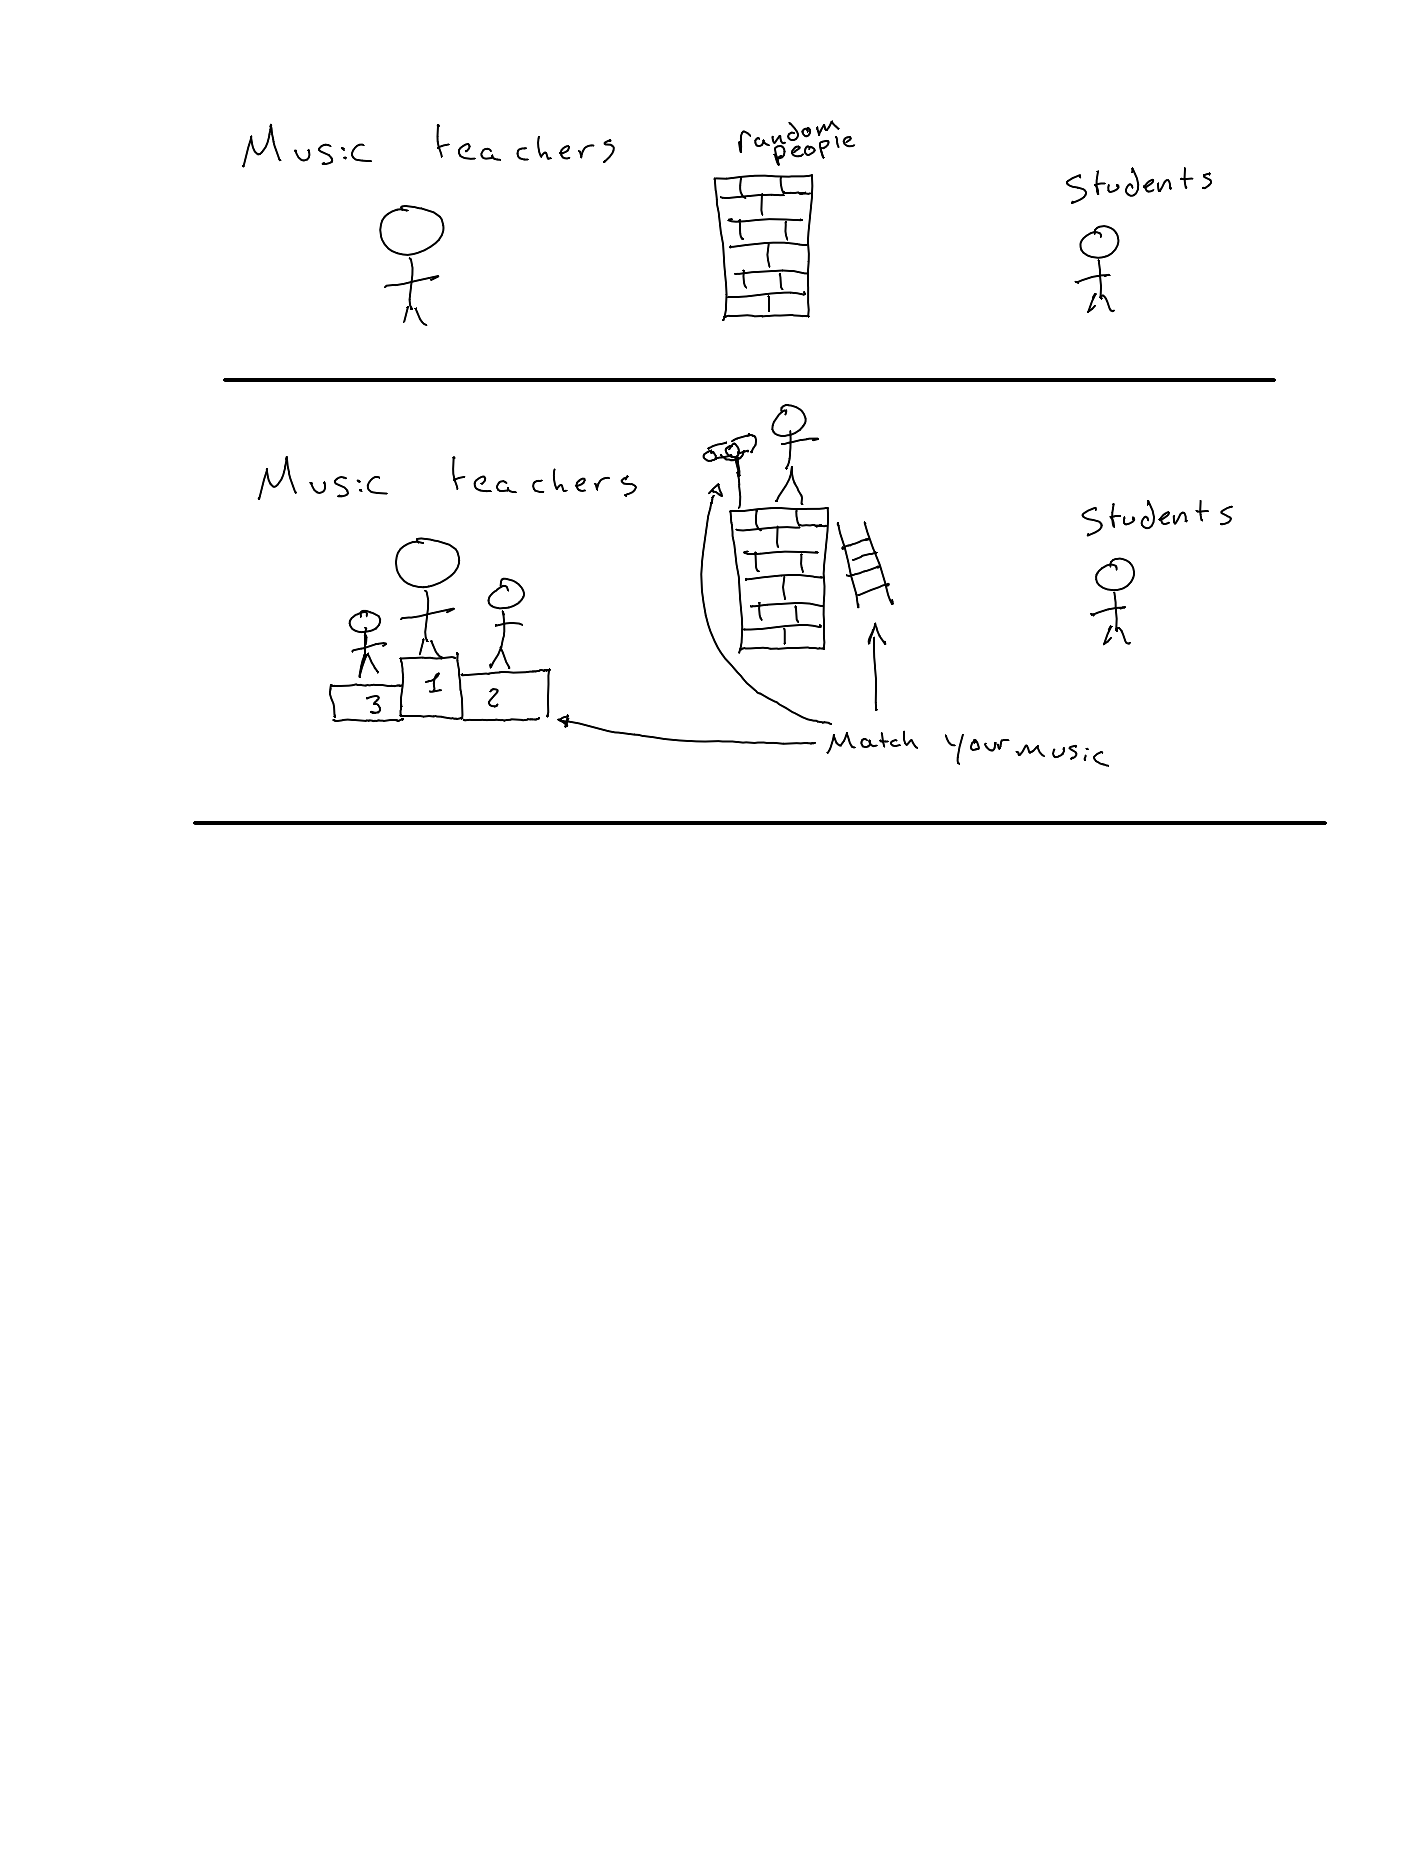 Music teachers
random
people
Students
Music teachers
Students
3
1
2
Match Your music